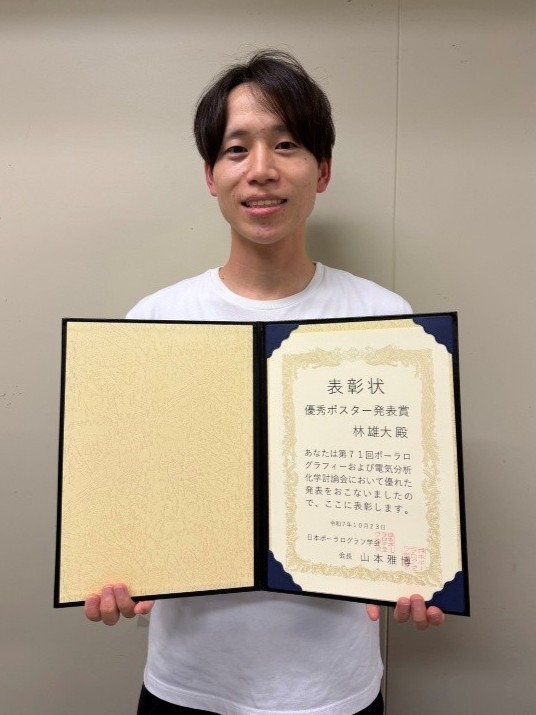 表彰状
優秀ポスター発表賞
林雄大殿
あなたは第７１回ポーラロ
グラフィーおよび電気分析
化学討論会において優れた
発表をおこないましたの
で、ここに表彰します。
令和７年１０月２３日
日本ポーラログラフ学会
会長　山本雅博